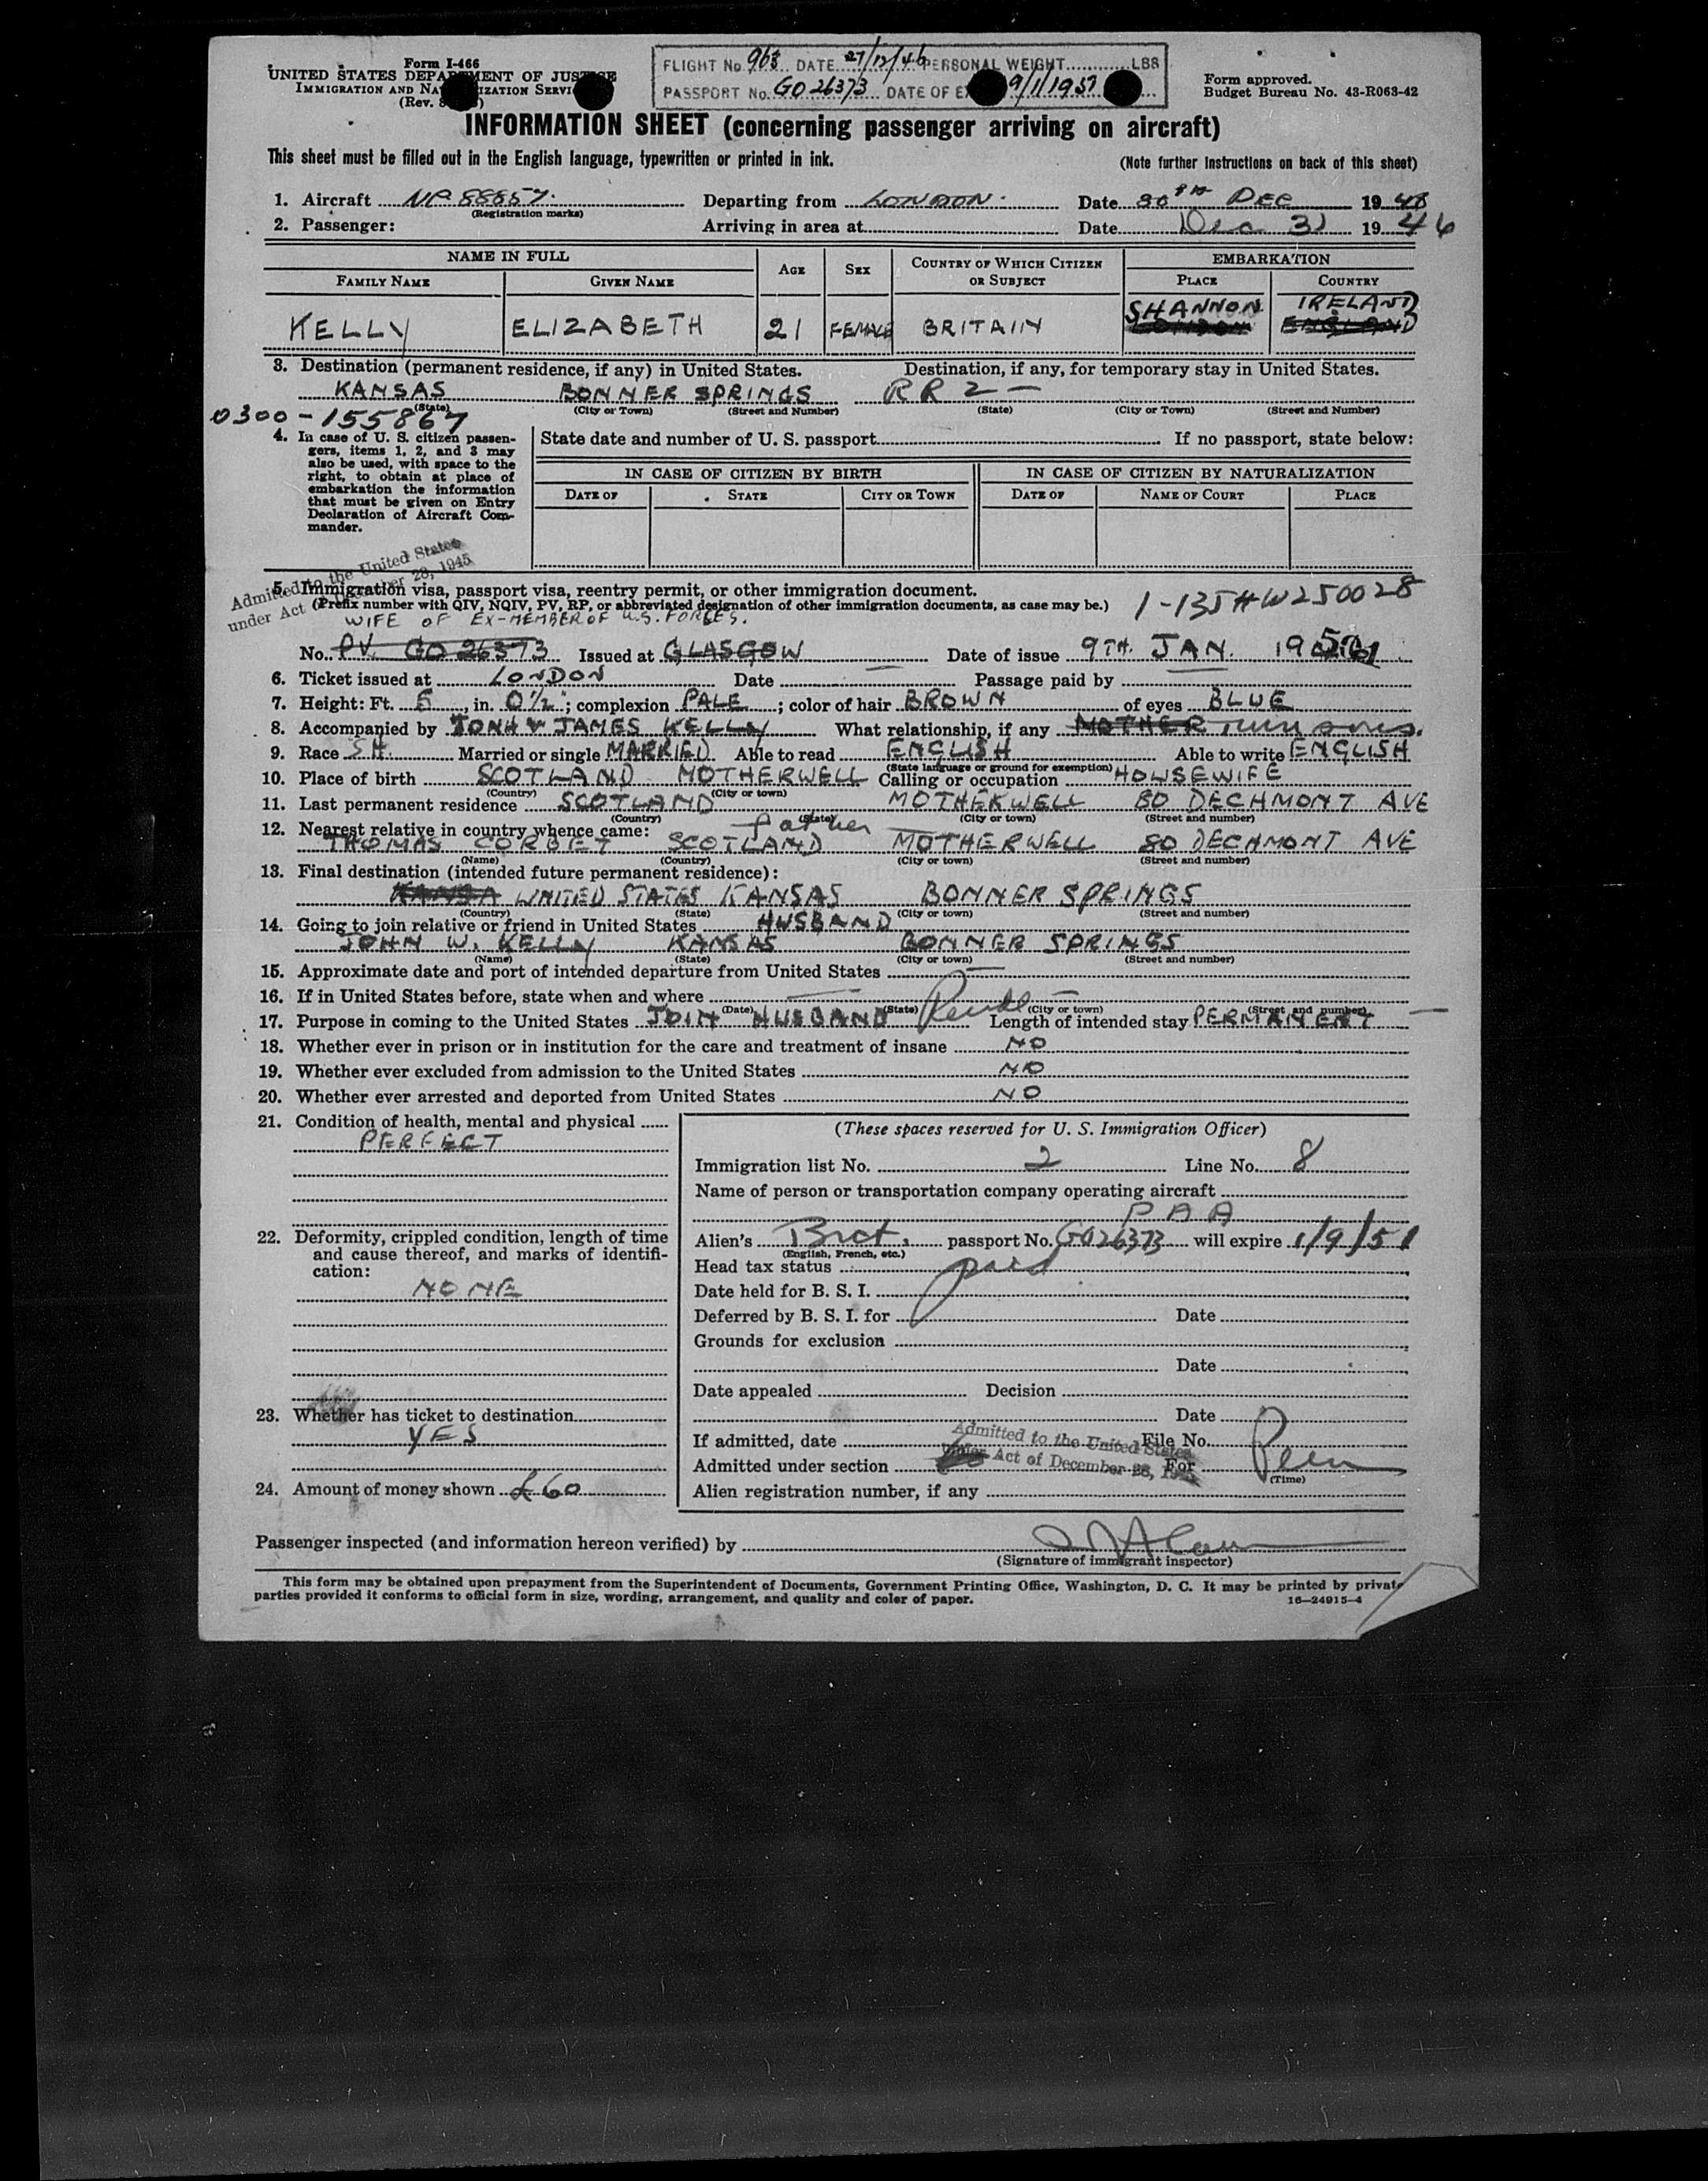 Form I-466
UNITED STATES DEPARTMENT OF JUSTICE
IMMIGRATION AND NATURALIZATION SERVICE
(Rev.
FLIGHT No. 963 DATE 27/12/46 PERSONAL WEIGHT LBS
PASSPORT No. GO 26373 DATE OF 9/1/1951
Form approved.
Budget Bureau No. 43-R063-42
INFORMATION SHEET (concerning passenger arriving on aircraft)
This sheet must be filled out in the English language, typewritten or printed in ink.
(Note further instructions on back of this sheet)
1. Aircraft 88857. Departing from LONDON. Date 30th DEC 19 46
(Registration marks)
2. Passenger: Arriving in area at Date Dec 31 19 46
NAME IN FULL AGE SEX COUNTRY OF WHICH CITIZEN OR SUBJECT EMBARKATION
FAMILY NAME GIVEN NAME PLACE COUNTRY
SHANNON IRELAND
KELLY ELIZABETH 21 FEMALE BRITAIN LONDON ENGLAND
3. Destination (permanent residence, if any) in United States. Destination, if any, for temporary stay in United States.
KANSAS BONNER SPRINGS RR 2 —
(State) (City or Town) (Street and Number) (State) (City or Town) (Street and Number)
0300-155867
4. In case of U. S. citizen passengers, items 1, 2, and 3 may also be used, with space to the right, to obtain at place of embarkation the information that must be given on Entry Declaration of Aircraft Commander.
State date and number of U. S. passport If no passport, state below:
IN CASE OF CITIZEN BY BIRTH IN CASE OF CITIZEN BY NATURALIZATION
DATE OF STATE CITY OR TOWN DATE OF NAME OF COURT PLACE
Admitted to the United States
under Act December 28, 1945
5. Immigration visa, passport visa, reentry permit, or other immigration document.
(Prefix number with QIV, NQIV, PV, RP, or abbreviated designation of other immigration documents, as case may be.)
1-135HW250028
WIFE OF EX-MEMBER OF U.S. FORCES.
No. PV. GO 26373 Issued at GLASGOW Date of issue 9TH. JAN. 19
6. Ticket issued at LONDON Date Passage paid by
7. Height: Ft. 5, in. 0½; complexion PALE; color of hair BROWN of eyes BLUE
8. Accompanied by JONH & JAMES KELLY What relationship, if any MOTHER Twin sons.
9. Race SH. Married or single MARRIED Able to read ENGLISH Able to write ENGLISH
(State language or ground for exemption)
10. Place of birth SCOTLAND MOTHERWELL Calling or occupation HOUSEWIFE
(Country) (City or town)
11. Last permanent residence SCOTLAND MOTHERWELL 80 DECHMONT AVE
(Country) (State) (City or town) (Street and number)
12. Nearest relative in country whence came: father
THOMAS CORBET SCOTLAND MOTHERWELL 80 DECHMONT AVE
(Name) (Country) (City or town) (Street and number)
13. Final destination (intended future permanent residence):
UNITED STATES KANSAS BONNER SPRINGS
(Country) (State) (City or town) (Street and number)
14. Going to join relative or friend in United States HUSBAND
JOHN W. KELLY KANSAS BONNER SPRINGS
(Name) (State) (City or town) (Street and number)
15. Approximate date and port of intended departure from United States —
16. If in United States before, state when and where —
(Date) (State) (City or town) (Street and number)
17. Purpose in coming to the United States JOIN HUSBAND Length of intended stay PERMANENT
18. Whether ever in prison or in institution for the care and treatment of insane NO
19. Whether ever excluded from admission to the United States NO
20. Whether ever arrested and deported from United States NO
21. Condition of health, mental and physical
PERFECT
22. Deformity, crippled condition, length of time and cause thereof, and marks of identification:
NONE
23. Whether has ticket to destination
YES
24. Amount of money shown £60
(These spaces reserved for U. S. Immigration Officer)
Immigration list No. 2 Line No. 8
Name of person or transportation company operating aircraft
PAA
Alien's Brit. passport No. GO26373 will expire 1/9/51
(English, French, etc.)
Head tax status paid
Date held for B. S. I.
Deferred by B. S. I. for Date
Grounds for exclusion
Date
Date appealed Decision
Date
If admitted, date File No.
Admitted to the United States
under Act of December 28, 1945
Admitted under section For
(Time)
Alien registration number, if any
Passenger inspected (and information hereon verified) by
(Signature of immigrant inspector)
This form may be obtained upon prepayment from the Superintendent of Documents, Government Printing Office, Washington, D. C. It may be printed by private
parties provided it conforms to official form in size, wording, arrangement, and quality and color of paper.
16—24915-4